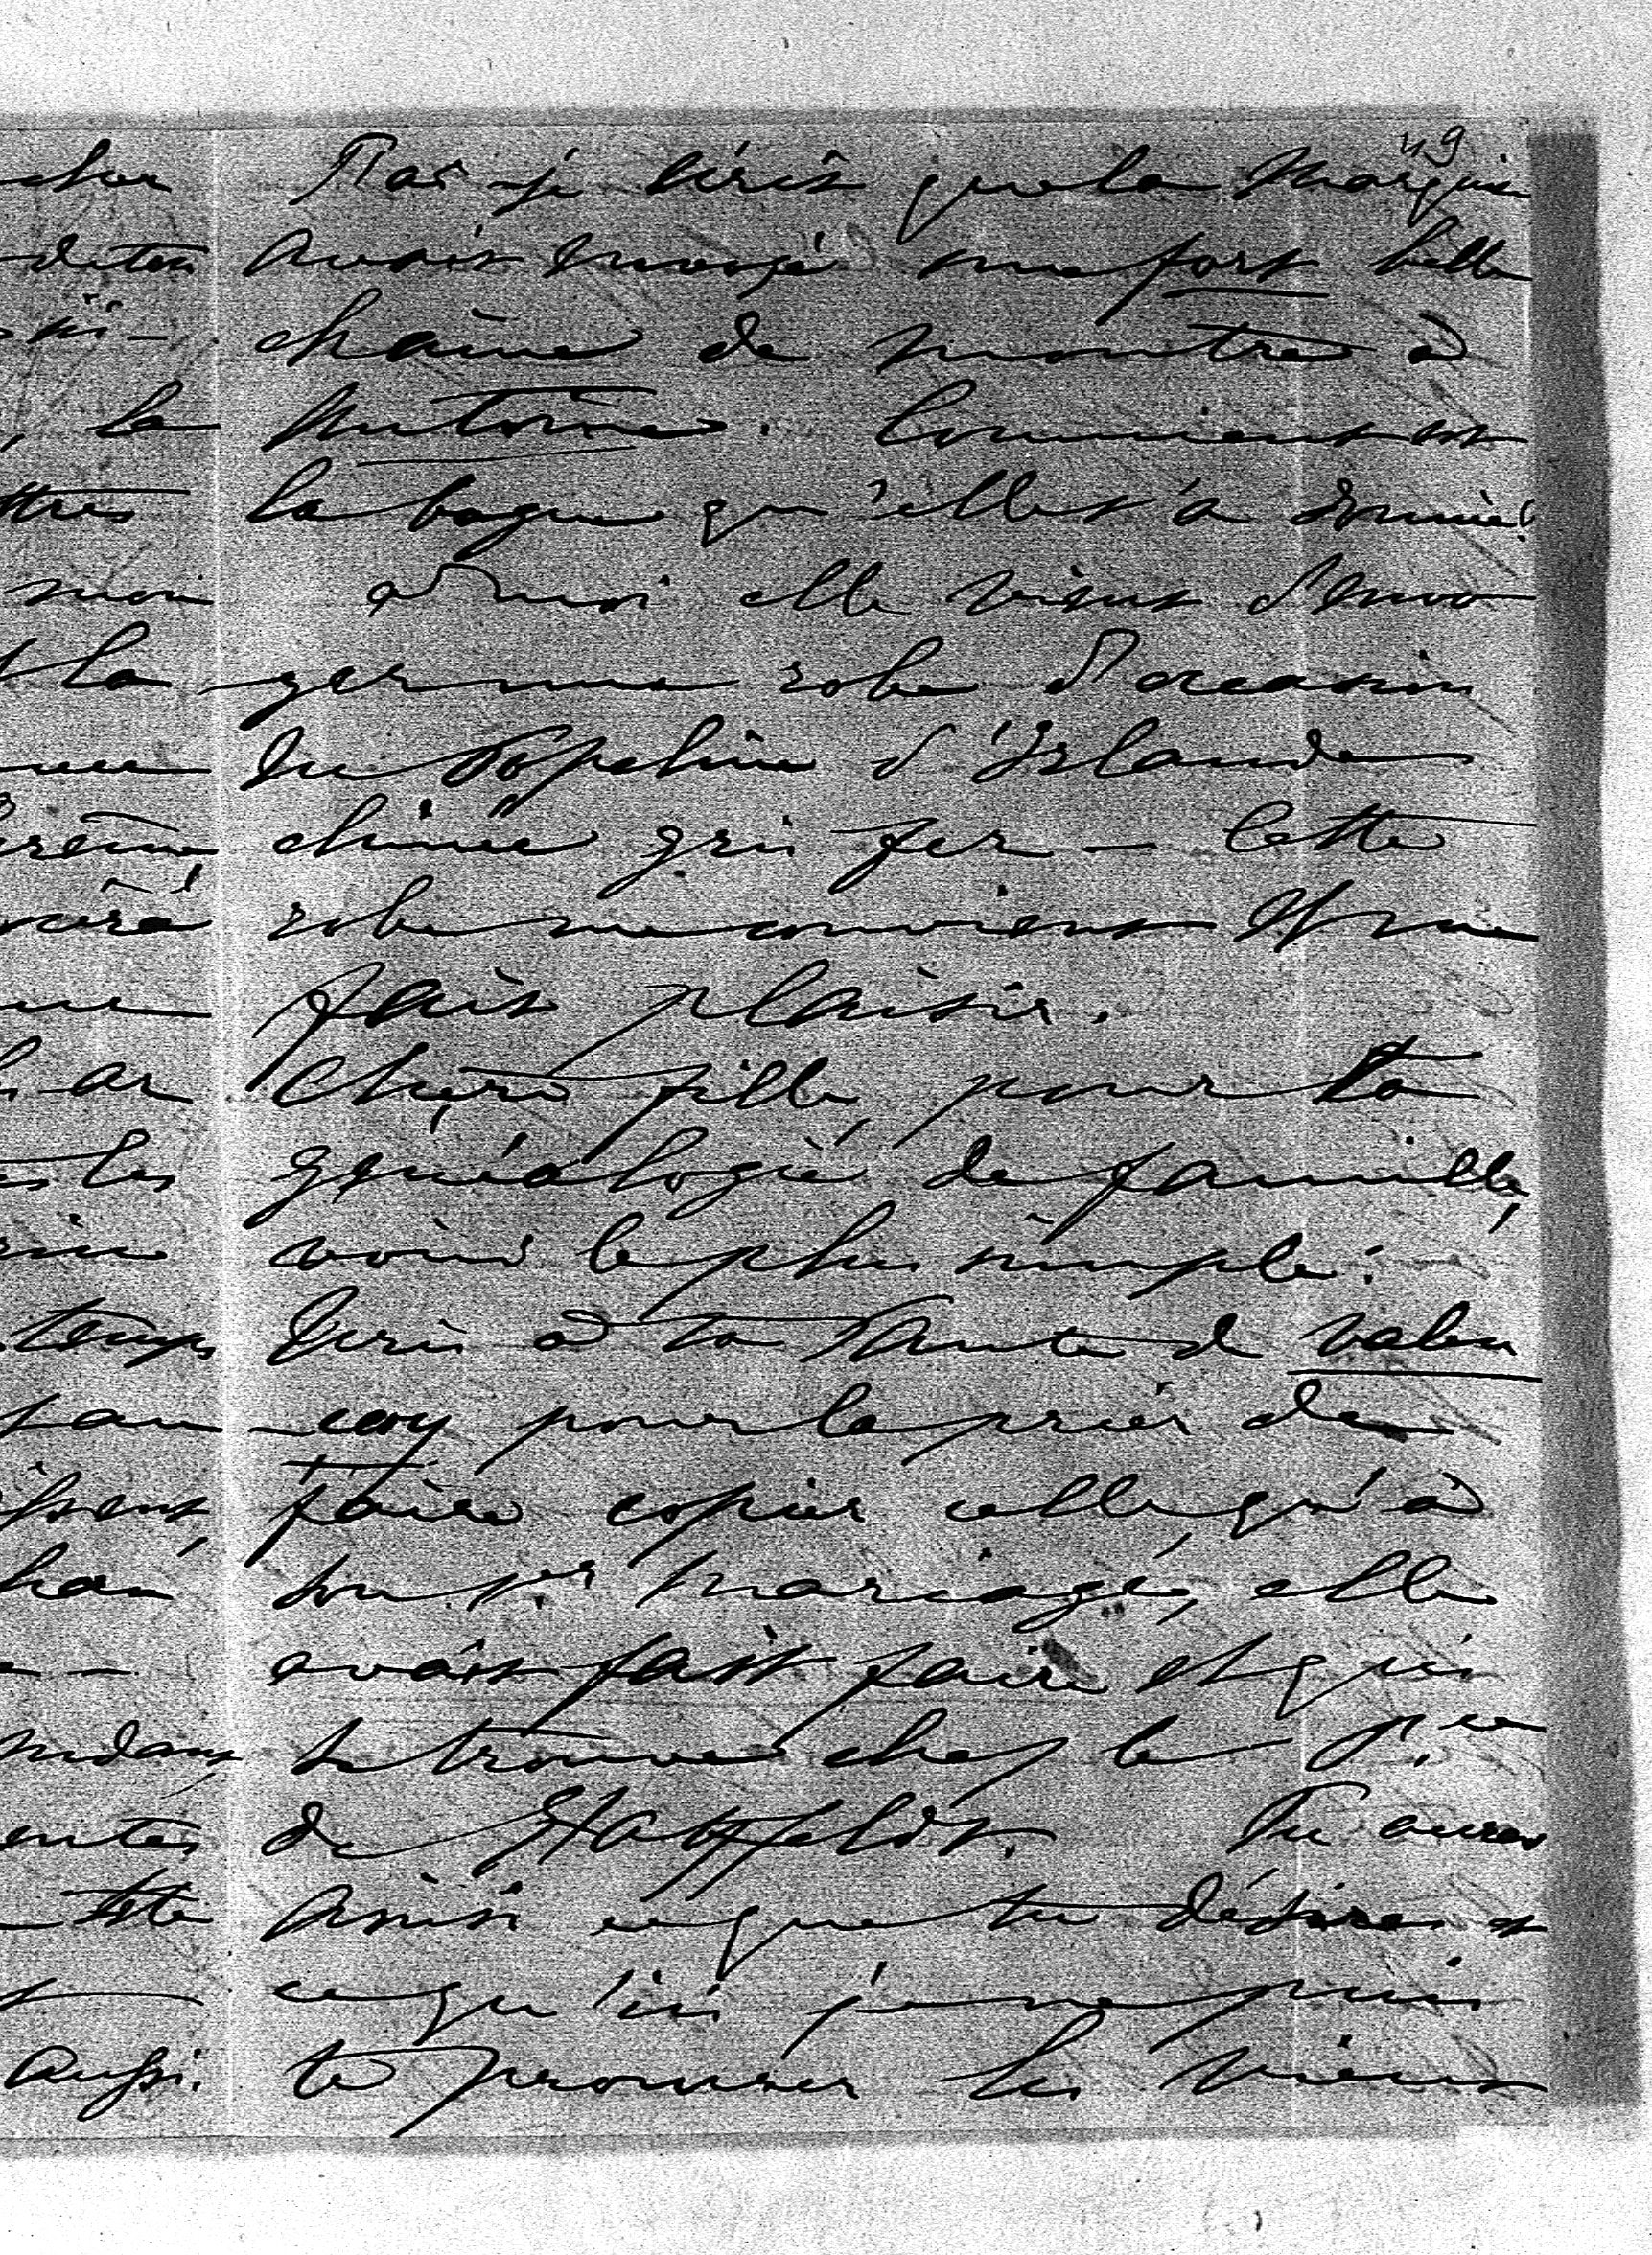 49
T'ai-je écrit que la Marquise
avait envoyé une fort belle
chaine de montre à
Antoine. Comment est
la bague qu'elle t'a donnée?
à moi elle vient d'envo-
-yer une robe d'occasion
en Popeline d'Irlande
chinée gris fer — Cette
robe me convient & me
fait plaisir.
Chère fille, pour ta
généalogie de famille,
voici le plus simple:
Ecris à ta Tante de Valen
-cay pour la prier de
faire copier celle qu'à
son 1er mariage, elle
avait fait faire et qui
se trouve chez le Pce
de Hatzfeldt. Tu auras
ainsi ce que tu désires et
ce qu'ici je ne puis
te procurer les vieux
cher
de ton
la
ttres
moi
la
les
temps
tête
aussi.